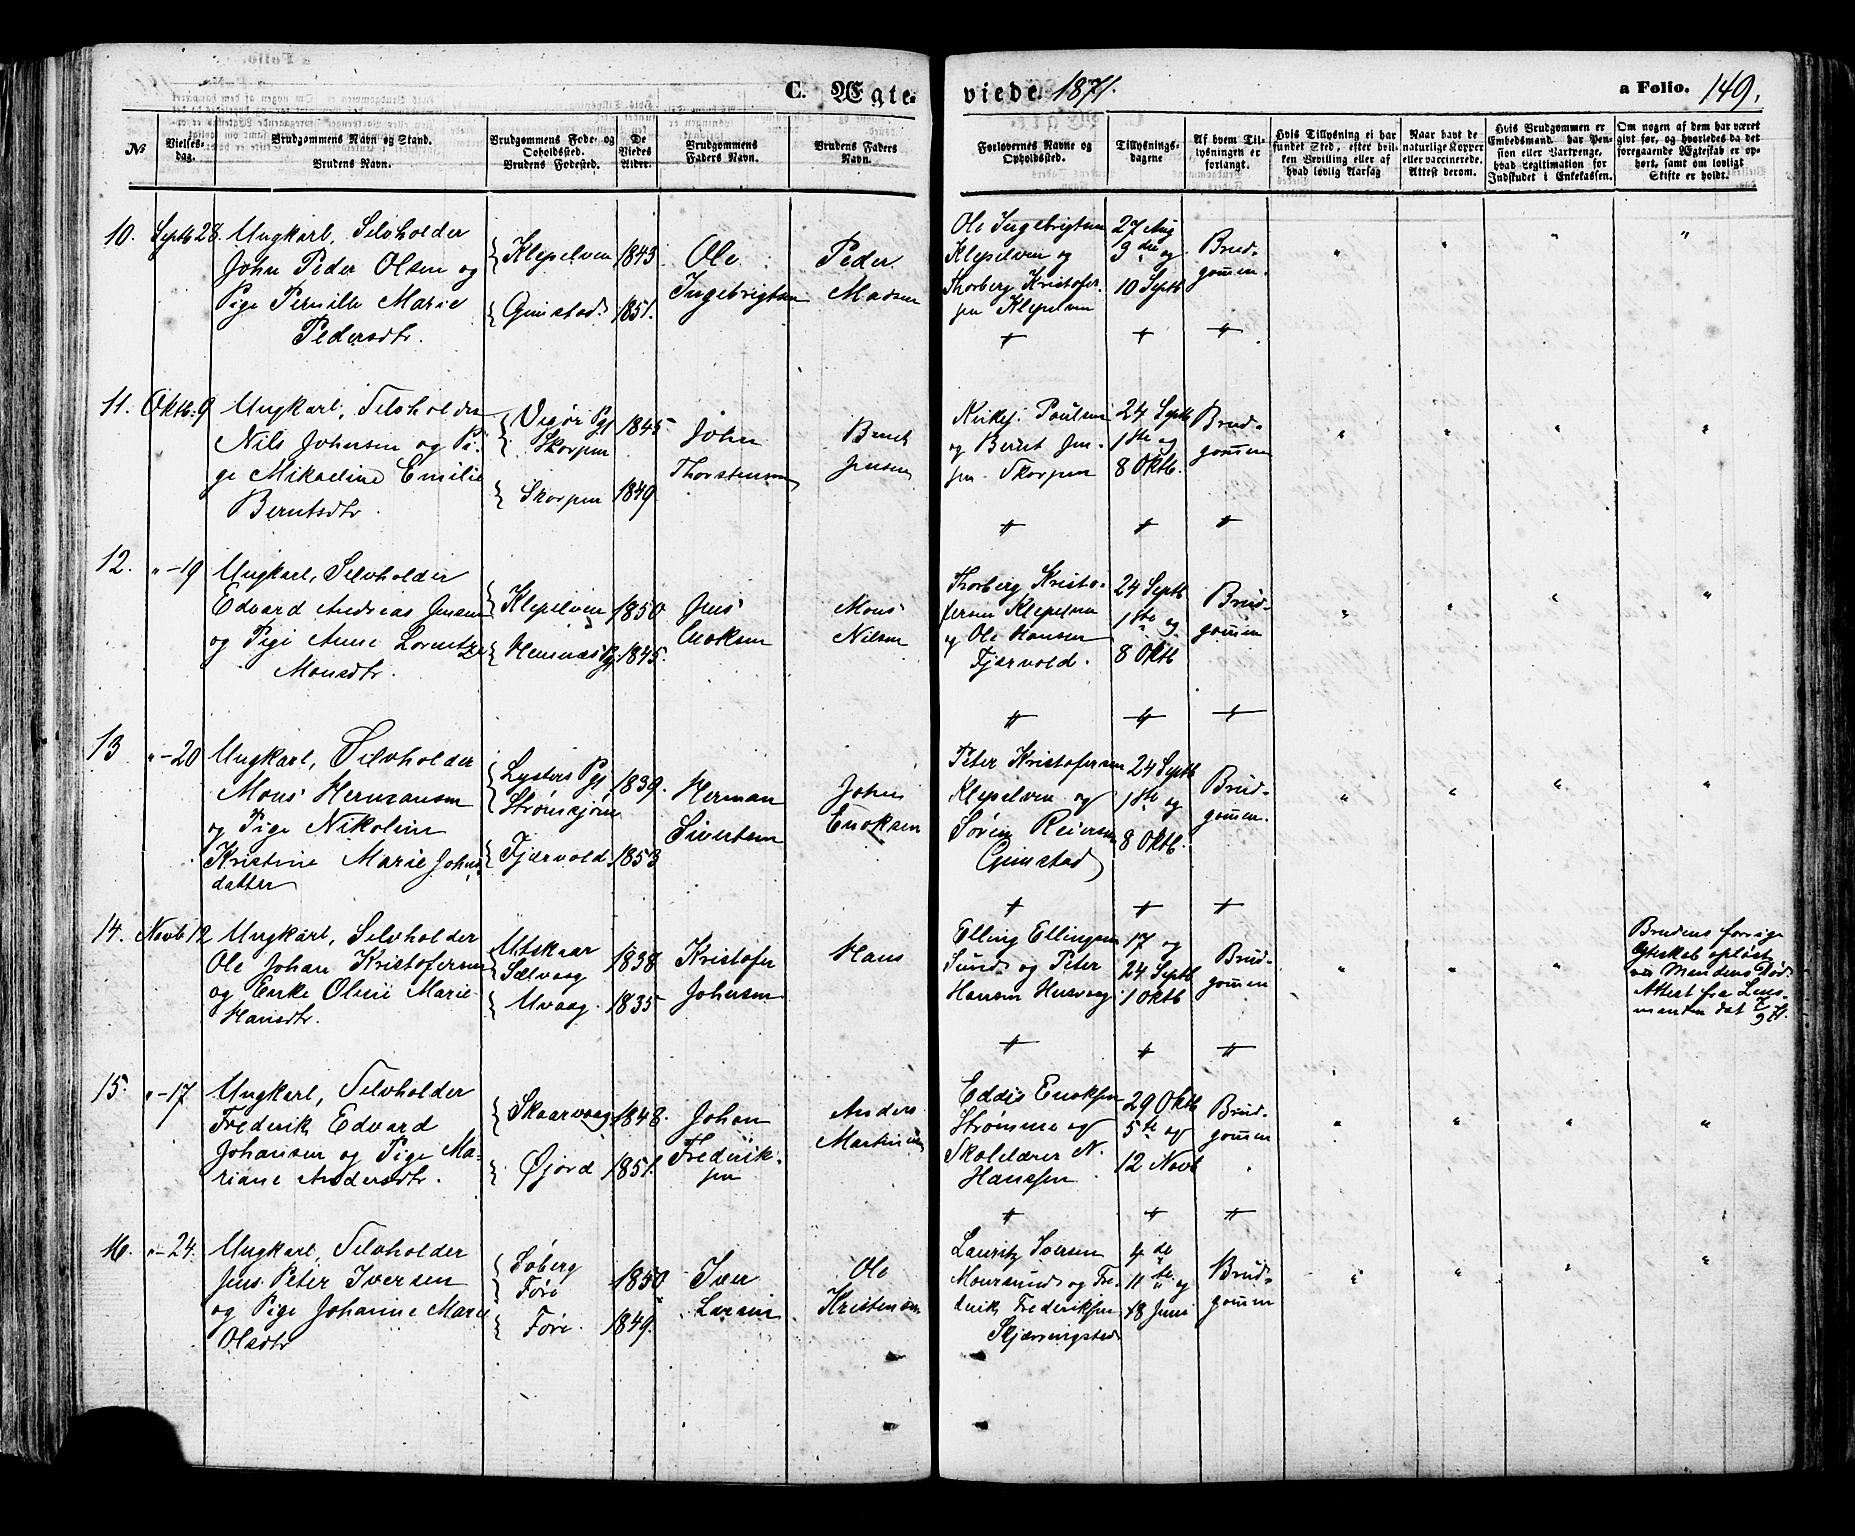 C. Ægte-
viede 1871.
a Folio. 149.
№
Vielses-
dag.
Brudgommens Navn og Stand.
Brudens Navn.
Brudgommens Føde- og
Opholdssted.
Brudens Fødested.
De
Viedes
Alder.
Brudgommens
Faders Navn.
Brudens Faders
Navn.
Forlovernes Navne og
Opholdssted.
Tillysnings-
dagene
Af hvem Til-
lysningen er
forlangt.
Hvis Tillysning ei har
fundet Sted, efter hvil-
ken Bevilling eller af
hvad lovlig Aarsag
Naar havt de
naturlige Kopper
eller vaccinerede.
Attest derom.
Hvis Brudgommen er
Embedsmand, har Pen-
sion eller Vartpenge,
hvad Legitimation for
Indskudet i Enkekassen.
Om nogen af dem har været
gift før, og hvorledes da det
foregaaende Ægteskab er op-
hørt, samt om lovligt
Skifte er holdt.
10. Septb 28. Ungkarl, Selvholder
John Peder Olsen og
Pige Pernille Marie
Pedersdtr.
Klepelven 1843
Grimstad 1851.
Ole
Ingebrigtsen
Peder
Madsen
Ole Ingebrigtsen
Klepelven og
Thorberg Kristofer-
sen Klepelven
27 Aug
3die og
10 Septb
Brud-
gommen.
11. Oktb. 9 Ungkarl, Selvholder
Nils Johnsen og Pi-
ge Mikaeline Emilie
Berntsdtr.
Vegør Pgj
Skorpen 1845
Skorpen 1849
John
Thorstensen
Bernt
Jensen
Kirkesj. Poulsen
og Berut Jen-
sen Skorpen
24 Septb
1ste og
8 Oktb.
Brud-
gommen
12. " - 19 Ungkarl, Selvholder
Edvard Andreas Jensen
og Pige Anne Lorentze
Monsdtr.
Klepelven 1850
Hemnæs Pgj 1845.
Jens
Enoksen
Mons
Nilsen
Thorberg Kristo-
fersen Klepelven
og Ole Hansen
Fjærvold.
24 Septb
1ste og
8 Oktb
Brud-
gommen
13 " - 20 Ungkarl, Selvholder
Mons Hermansen
og Pige Nikoline
Kristine Marie Johns-
datter
Lysters Pgj
1839.
Fjærvold 1853
Herman
Sivertsen
Johns
Enoksen
Peter Kristofersen
Klepelven og
Søren Reiersen
Grimstad
24 Septb
1ste og
8 Oktb.
Brud-
gommen.
14. Novb 12 Ungkarl, Selvholder
Ole Johan Kristofersen
og Enke Oline Marie
Hansdtr.
Utskaar
Sælvaag 1838
Uvaag 1835
Kristofer
Johnsen
Hans
Elling Ellingsen
Sund og Peter
Hansen Husvaag
17 og
24 Septb
1 Oktb
Brud-
gommen
Brudens forrige
Ægteskab opløst
ved Mandens Død.
Attest fra Lens-
manden dat 7/9 71.
15. " - 17 Ungkarl, Selvholder
Frederik Edvard
Johansen og Pige Ma-
riane Andersdtr.
Skaarvaag 1848.
Øjord 1851.
Johan
Frederik-
sen
Anders
Martinusen
Eddis Enoksen
Strømme og
Skolelærer N.
Hanssen
29 Oktb
5te og
12 Novb
Brud-
gommen
16. " - 24. Ungkarl, Selvholder
Jens Peter Iversen
og Pige Johanne Marie
Olsdtr
Søberg
Føre 1850
Føre 1849.
Iver
Larsen
Ole
Kristensen
Lauritz Iversen
Moursund og Fre-
derik Frederiksen
Skjærringstad
4de
11te og
18 Juni
Brud-
gommen